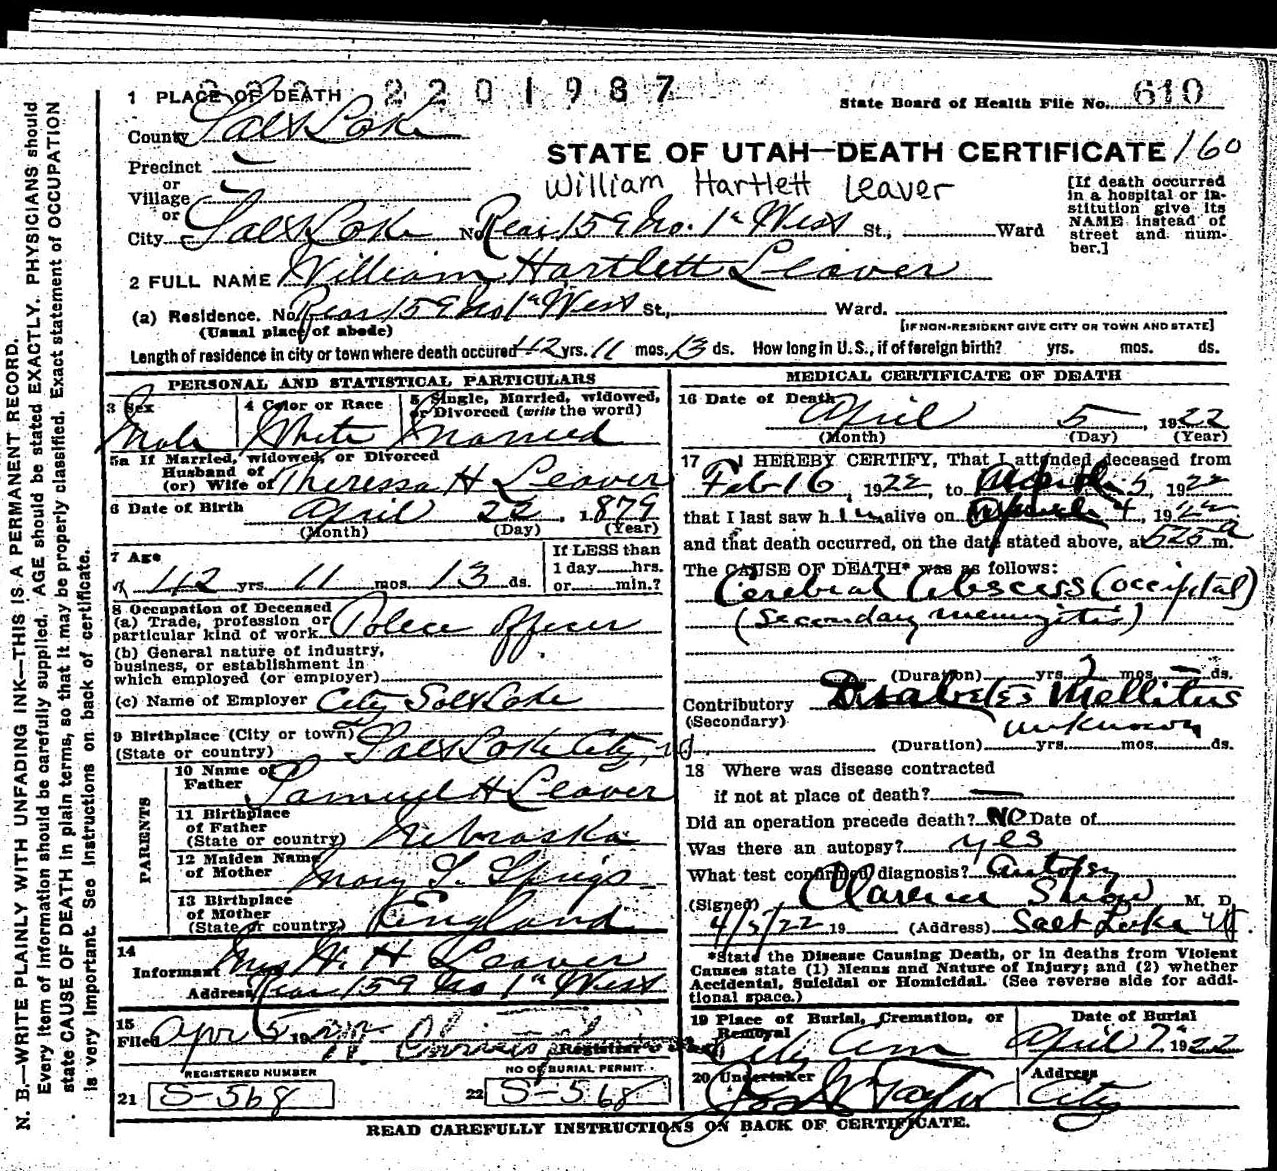 1 PLACE OF DEARTH 2 2 0 1 9 8 7
State Board of Health File No. 610
County Salt Lake
STATE OF UTAH—DEATH CERTIFICATE 160
Precinct
or
Village
or
William Hartlett Leaver
[If death occurred
in a hospital or in-
stitution give its
NAME instead of
street and num-
ber.]
City Salt Lake No. Rear 159 No. 1st West St., Ward
2 FULL NAME William Hartlett Leaver
(a) Residence. No. Rear 159 No 1st West St., Ward.
(Usual place of abode) [IF NON-RESIDENT GIVE CITY OR TOWN AND STATE]
Length of residence in city or town where death occured 42 yrs. 11 mos. 13 ds. How long in U. S., if of foreign birth? yrs. mos. ds.
PERSONAL AND STATISTICAL PARTICULARS
3 Sex 4 Color or Race 5 Single, Married, widowed,
or Divorced (write the word)
Male White Married
5a If Married, widowed, or Divorced
Husband of
(or) Wife of Theressa H Leaver
6 Date of Birth April 22, 1879
(Month) (Day) (Year)
7 Age
42 yrs. 11 mos. 13 ds.
If LESS than
1 day hrs.
or min.?
8 Occupation of Deceased
(a) Trade, profession or
particular kind of work Police officer
(b) General nature of industry,
business, or establishment in
which employed (or employer)
(c) Name of Employer City Salt Lake
9 Birthplace (City or town)
(State or country) Salt Lake City,
PARENTS
10 Name of
Father Samuel H Leaver
11 Birthplace
of Father
(State or country) Nebraska
12 Maiden Name
of Mother Mary
13 Birthplace
of Mother
(State or country) England
14
Informant Mrs W. H Leaver
Address Rear 159 No 1st West
15
Filed Apr 5 1922
Registrar
REGISTERED NUMBER NO OF BURIAL PERMIT
21 S-568 22 S-568
MEDICAL CERTIFICATE OF DEATH
16 Date of Death
April 5, 1922
(Month) (Day) (Year)
17 I HEREBY CERTIFY, That I attended deceased from
Feb 16, 1922, to April 5, 1922
that I last saw him alive on April 4, 1922
and that death occurred, on the date stated above, at 525 a m.
The CAUSE OF DEATH* was as follows:
Cerebral Abscess (occipital)
(Secondary meningitis)
(Duration) yrs. 2 mos. — ds.
Contributory Diabetes Mellitus
(Secondary)
unknown
(Duration) yrs. mos. ds.
18 Where was disease contracted
if not at place of death? —
Did an operation precede death? NO Date of
Was there an autopsy? yes
What test confirmed diagnosis? Autopsy
(Signed) Clarence M. D.
4/5/22 19 (Address) Salt Lake Ut.
*State the Disease Causing Death, or in deaths from Violent
Causes state (1) Menns and Nature of Injury; and (2) whether
Accidental, Suicidal or Homicidal. (See reverse side for addi-
tional space.)
19 Place of Burial, Cremation, or
Removal
Date of Burial
City Cem April 7th 1922
20 Undertaker Address
Jos W Taylor City
READ CAREFULLY INSTRUCTIONS ON BACK OF CERTIFICATE.
N. B.—WRITE PLAINLY WITH UNFADING INK—THIS IS A PERMANENT RECORD.
Every item of information should be carefully supplied. AGE should be stated EXACTLY. PHYSICIANS should
state CAUSE OF DEATH in plain terms, so that it may be properly classified. Exact statement of OCCUPATION
is very important. See instructions on back of certificate.